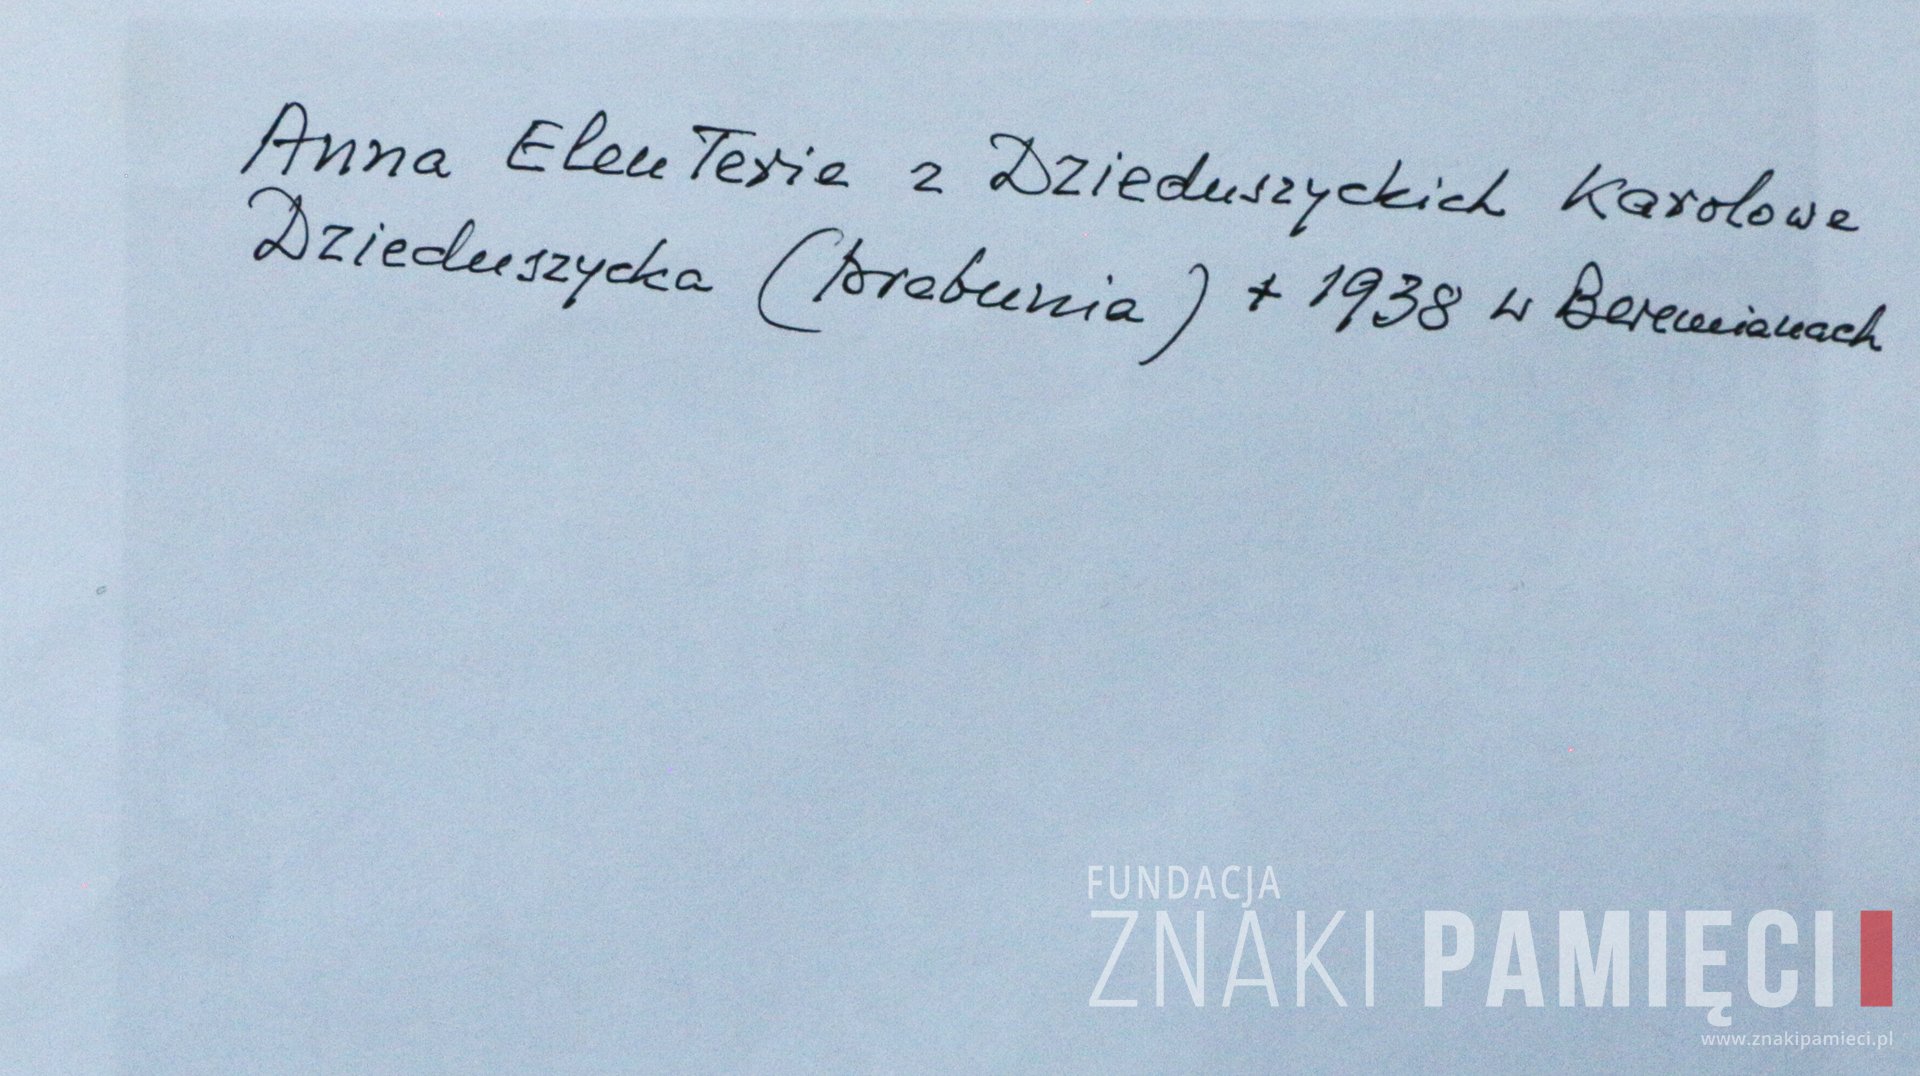 Anna Eleuteria z Dzieduszyckich Karolowa
Dzieduszycka (hrabunia) + 1938 w Beremianach
FUNDACJA
ZNAKI PAMIĘCI
www.znakipamieci.pl